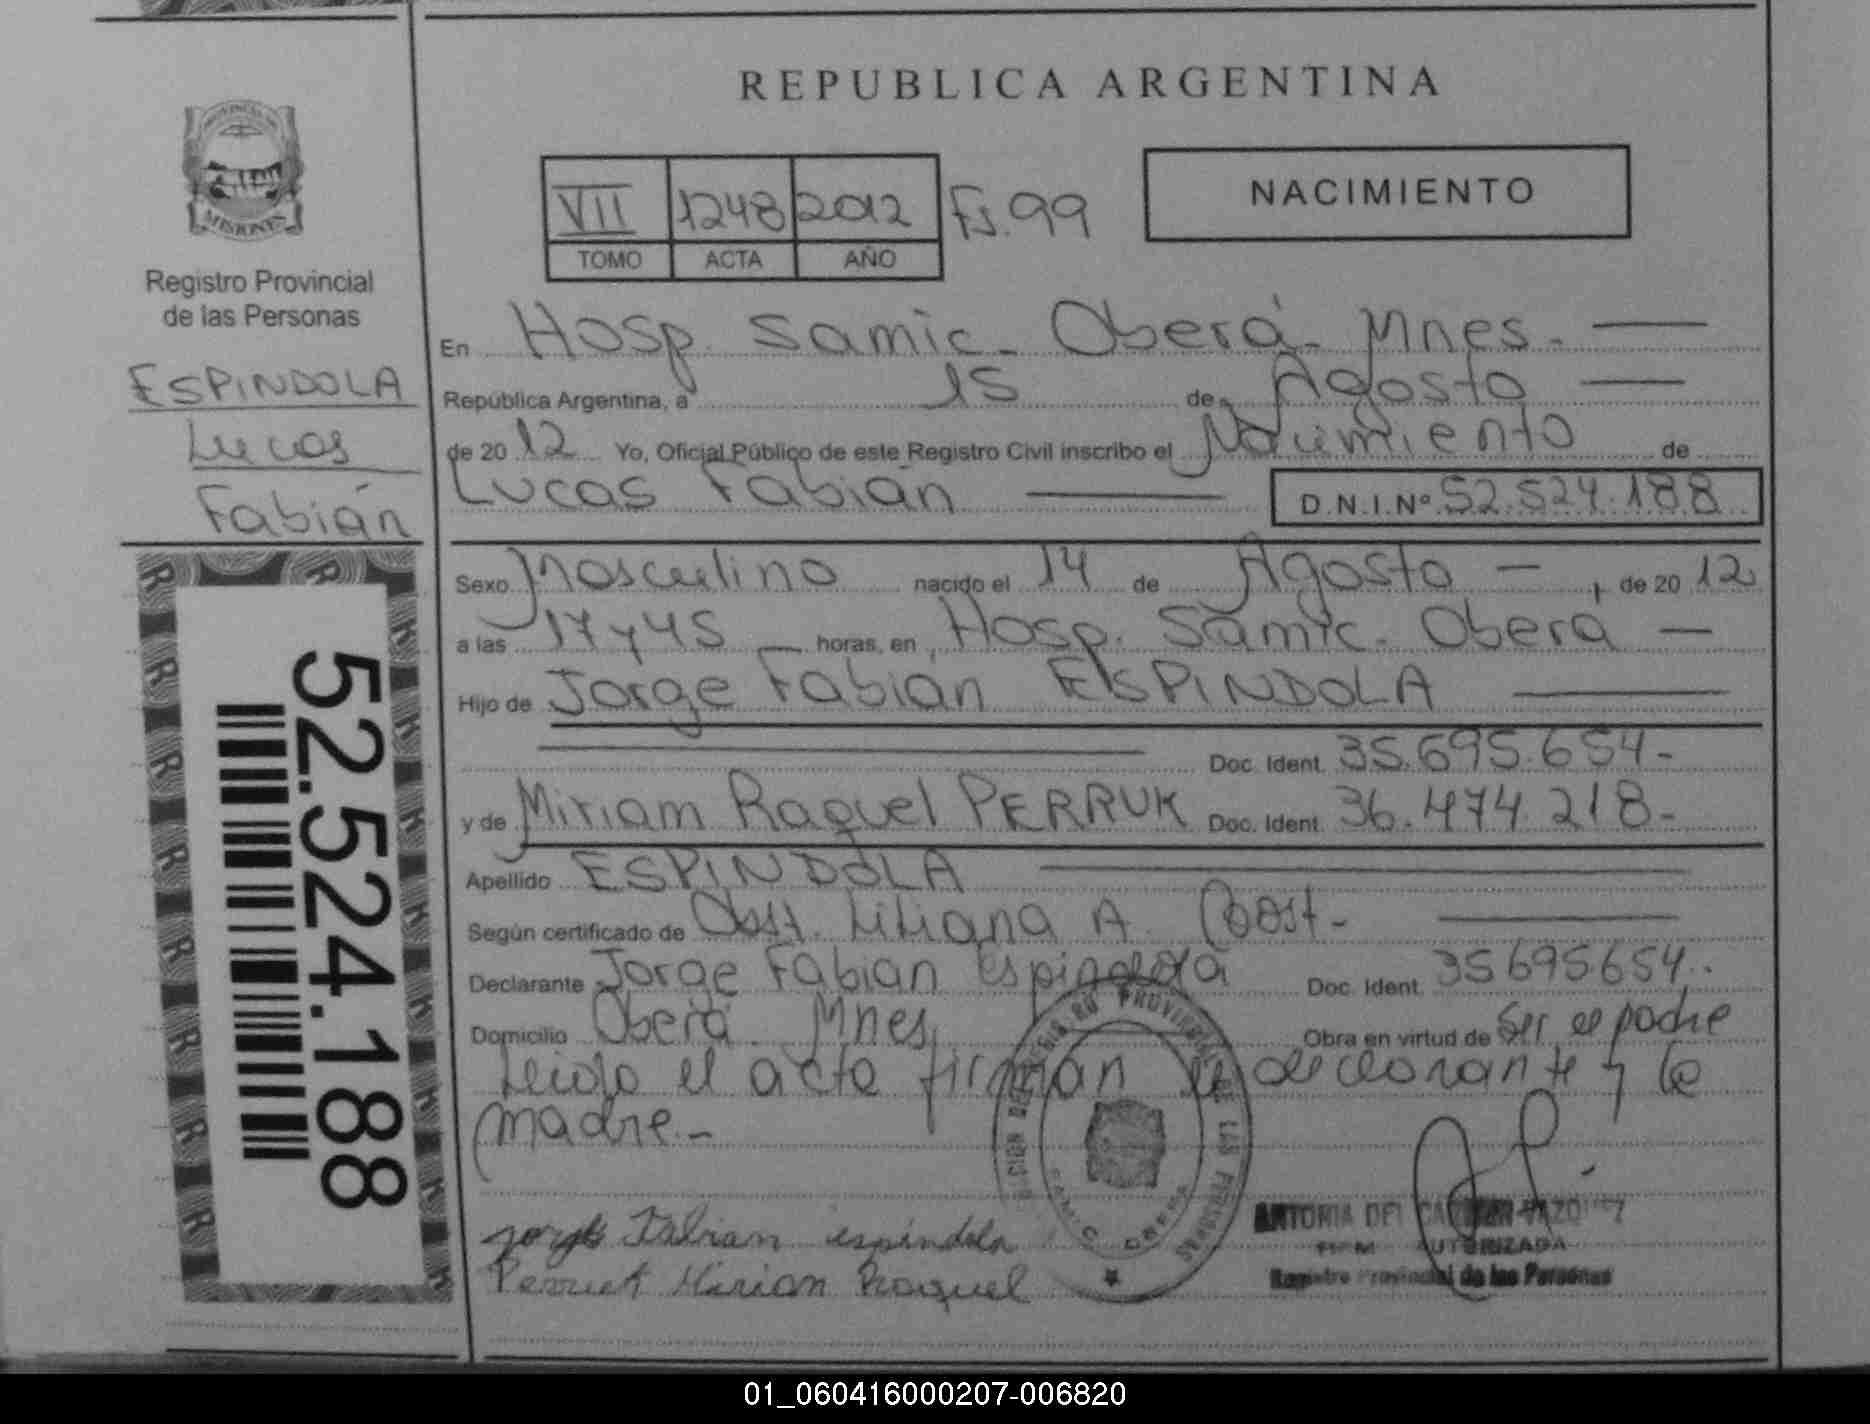 REPUBLICA ARGENTINA
PROVINCIA DE
MISIONES
Registro Provincial
de las Personas
ESPINDOLA
Lucas
Fabián
52.524.188
VII 1248 2012 Fs. 99
TOMO ACTA AÑO
NACIMIENTO
En Hosp. Samic. Oberá. Mnes.
República Argentina, a 15 de Agosto
de 2012 Yo, Oficial Público de este Registro Civil inscribo el Nacimiento de
Lucas Fabián D.N.I.Nº 52.524.188
Sexo Masculino nacido el 14 de Agosto , de 2012
a las 17 y 45 horas, en Hosp. Samic. Oberá
Hijo de Jorge Fabián ESPINDOLA
Doc. Ident. 35.695.654.
y de Miriam Raquel PERRUK Doc. Ident. 36.474.218.
Apellido ESPINDOLA
Según certificado de Obst. Liliana A.
Declarante Jorge Fabián Espindola Doc. Ident. 35.695.654.
Domicilio Oberá Mnes. Obra en virtud de Ser el padre
Leido el acta firman el declarante y la
madre.-
REGISTRO PROVINCIAL DE LAS PERSONAS
SAMIC OBERA
jorge Fabian espindola
Perruk Mirian Raquel
ANTONIA DEL CARMEN VAZQUEZ
FIRMA AUTORIZADA
Registro Provincial de las Personas
01_060416000207-006820